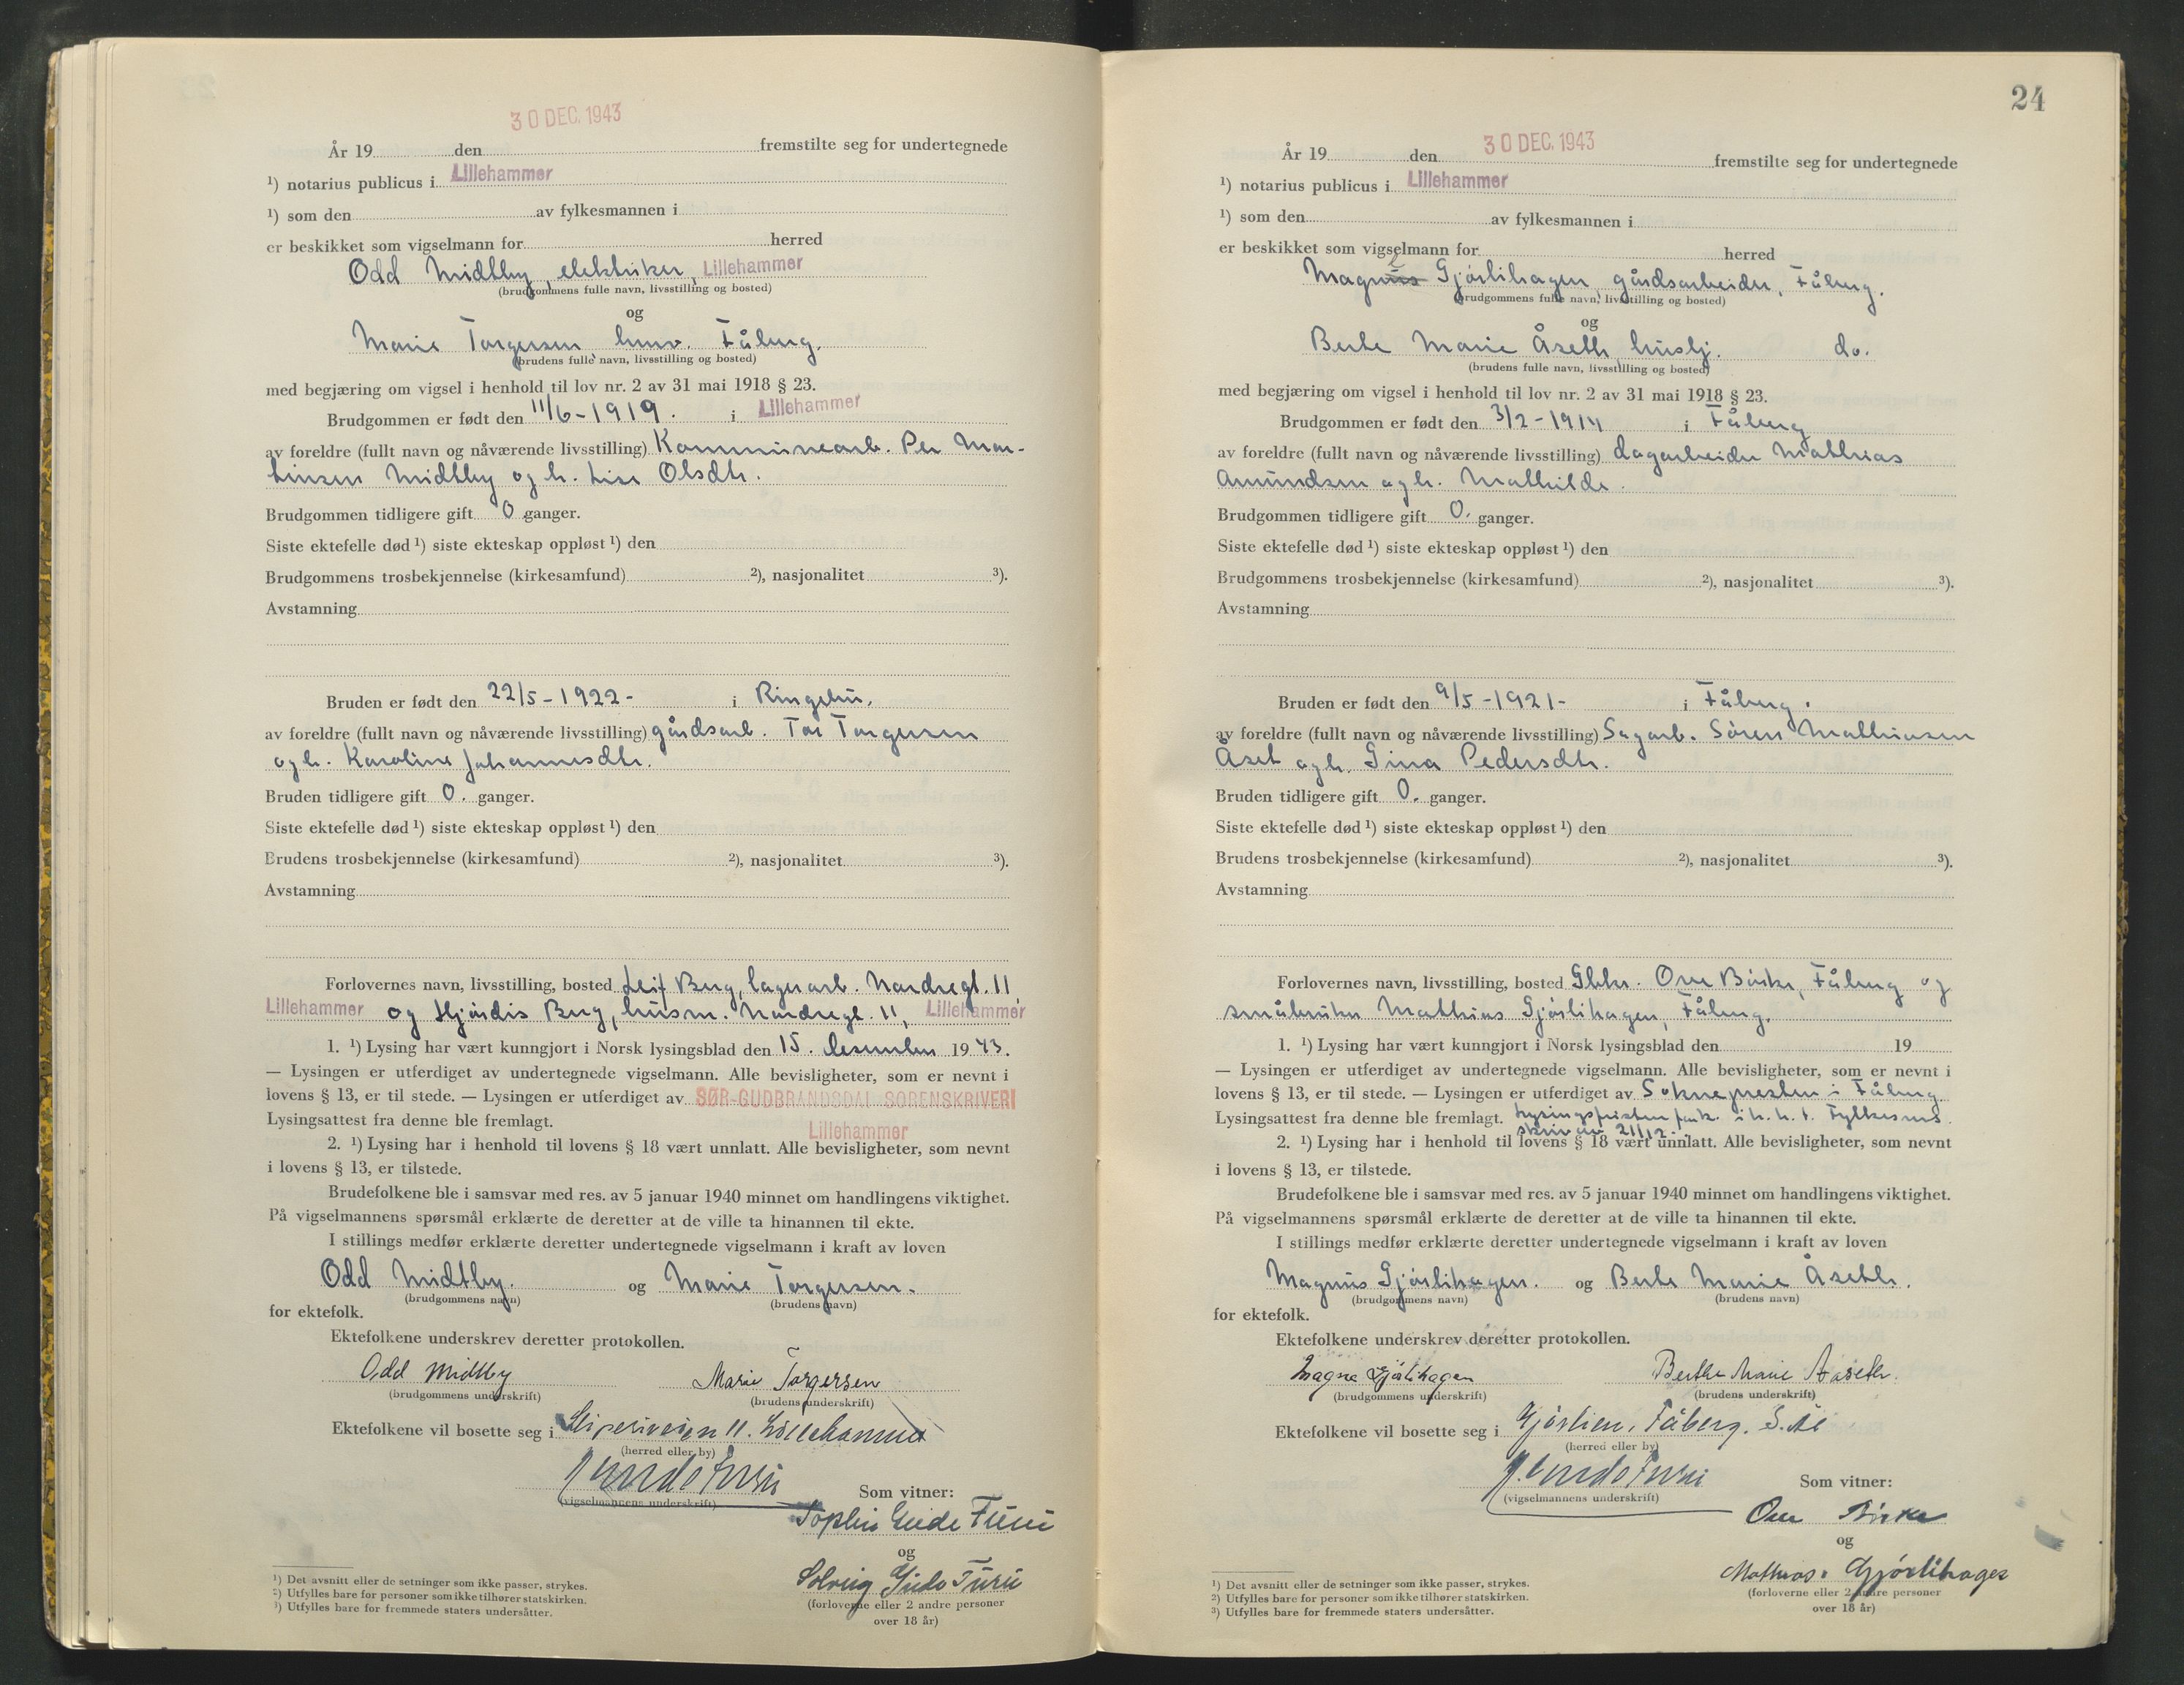 30 DEC. 1943
År 19 den fremstilte seg for undertegnede
¹) notarius publicus i Lillehammer
¹) som den av fylkesmannen i
er beskikket som vigselmann for herred
Odd Midtby, elektriker, Lillehammer
(brudgommens fulle navn, livsstilling og bosted)
og
Marie Torgersen Fåberg.
(brudens fulle navn, livsstilling og bosted)
med begjæring om vigsel i henhold til lov nr. 2 av 31 mai 1918 § 23.
Brudgommen er født den 11/6-1919. i Lillehammer
av foreldre (fullt navn og nåværende livsstilling) Kommunearb. Per Mar-
tinsen Midtby og h. Lise Olsdtr.
Brudgommen tidligere gift 0 ganger.
Siste ektefelle død ¹) siste ekteskap oppløst ¹) den
Brudgommens trosbekjennelse (kirkesamfund) ²), nasjonalitet ³).
Avstamning
Bruden er født den 22/5-1922- i Ringebu.
av foreldre (fullt navn og nåværende livsstilling) gårdsarb. Tor Torgersen
og h. Karoline Johannesdtr.
Bruden tidligere gift 0. ganger.
Siste ektefelle død ¹) siste ekteskap oppløst ¹) den
Brudens trosbekjennelse (kirkesamfund) ²), nasjonalitet ³).
Avstamning
Forlovernes navn, livsstilling, bosted Leif Berg, lagerarb. Nordregt. 11,
Lillehammer og Hjördis Berg, husm. Nordregt. 11, Lillehammer
1. ¹) Lysing har vært kunngjort i Norsk lysingsblad den 15. desember 1943.
— Lysingen er utferdiget av undertegnede vigselmann. Alle bevisligheter, som er nevnt i
lovens § 13, er til stede. — Lysingen er utferdiget av SØR-GUDBRANDSDAL SORENSKRIVERI
Lysingsattest fra denne ble fremlagt. Lillehammer
2. ¹) Lysing har i henhold til lovens § 18 vært unnlatt. Alle bevisligheter, som nevnt
i lovens § 13, er tilstede.
Brudefolkene ble i samsvar med res. av 5 januar 1940 minnet om handlingens viktighet.
På vigselmannens spørsmål erklærte de deretter at de ville ta hinannen til ekte.
I stillings medfør erklærte deretter undertegnede vigselmann i kraft av loven
Odd Midtby. og Marie Torgersen.
(brudgommens navn) (brudens navn)
for ektefolk.
Ektefolkene underskrev deretter protokollen.
Odd Midtby Marie Torgersen
(brudgommens underskrift) (brudens underskrift)
Ektefolkene vil bosette seg i 11. Lillehammer
(herred eller by)
(vigselmannens underskrift) Som vitner:
Furu
og
Solveig Gude Furu
(forloverne eller 2 andre personer
over 18 år)
¹) Det avsnitt eller de setninger som ikke passer, strykes.
²) Utfylles bare for personer som ikke tilhører statskirken.
³) Utfylles bare for fremmede staters undersåtter.
24
30 DEC. 1943
År 19 den fremstilte seg for undertegnede
¹) notarius publicus i Lillehammer
¹) som den av fylkesmannen i
er beskikket som vigselmann for herred
Magnus Gjörlihagen, gårdsarbeider, Fåberg.
(brudgommens fulle navn, livsstilling og bosted)
og
Berte Marie Åseth, hushj. do.
(brudens fulle navn, livsstilling og bosted)
med begjæring om vigsel i henhold til lov nr. 2 av 31 mai 1918 § 23.
Brudgommen er født den 3/2-1914 i Fåberg
av foreldre (fullt navn og nåværende livsstilling) dagarbeider Mathias
Amundsen og h. Mathilde.
Brudgommen tidligere gift 0. ganger.
Siste ektefelle død ¹) siste ekteskap oppløst ¹) den
Brudgommens trosbekjennelse (kirkesamfund) ²), nasjonalitet ³).
Avstamning
Bruden er født den 9/5-1921- i Fåberg.
av foreldre (fullt navn og nåværende livsstilling) Sagarb. Sören Mathiasen
Åset og h. Gina Pedersdtr.
Bruden tidligere gift 0. ganger.
Siste ektefelle død ¹) siste ekteskap oppløst ¹) den
Brudens trosbekjennelse (kirkesamfund) ²), nasjonalitet ³).
Avstamning
Forlovernes navn, livsstilling, bosted Gbkr. Ove Börke, Fåberg og
småbruker Mathias Gjörlihagen, Fåberg.
1. ¹) Lysing har vært kunngjort i Norsk lysingsblad den 19
— Lysingen er utferdiget av undertegnede vigselmann. Alle bevisligheter, som er nevnt i
lovens § 13, er til stede. — Lysingen er utferdiget av Soknepresten i Fåberg
Lysingsattest fra denne ble fremlagt. Lysingsfristen fork. i h. h. t. Fylkesms.
skriv av 21/12
2. ¹) Lysing har i henhold til lovens § 18 vært unnlatt. Alle bevisligheter, som nevnt
i lovens § 13, er tilstede.
Brudefolkene ble i samsvar med res. av 5 januar 1940 minnet om handlingens viktighet.
På vigselmannens spørsmål erklærte de deretter at de ville ta hinannen til ekte.
I stillings medfør erklærte deretter undertegnede vigselmann i kraft av loven
Magnus Gjörlihagen. og Berte Marie Åseth.
(brudgommens navn) (brudens navn)
for ektefolk.
Ektefolkene underskrev deretter protokollen.
Magne Gjörlihagen Berthe Marie Aaseth.
(brudgommens underskrift) (brudens underskrift)
Ektefolkene vil bosette seg i Gjörlien, Fåberg.
(herred eller by)
(vigselmannens underskrift) Som vitner:
Ove Börke
og
Mathias Gjörlihagen
(forloverne eller 2 andre personer
over 18 år)
¹) Det avsnitt eller de setninger som ikke passer, strykes.
²) Utfylles bare for personer som ikke tilhører statskirken.
³) Utfylles bare for fremmede staters undersåtter.